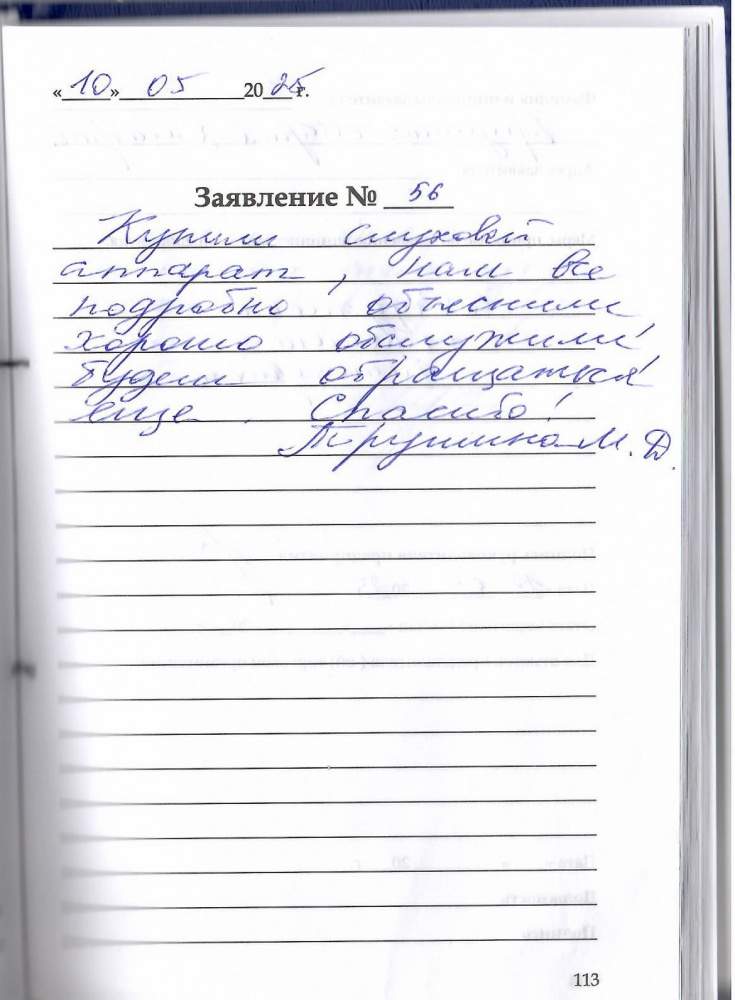 «10» 05 2025 г.
Заявление № 56
Купили слуховой
аппарат, нам все
подробно объяснили,
хорошо обслужили,
будем обращаться
еще. Спасибо!
Трушина М. Д.
113